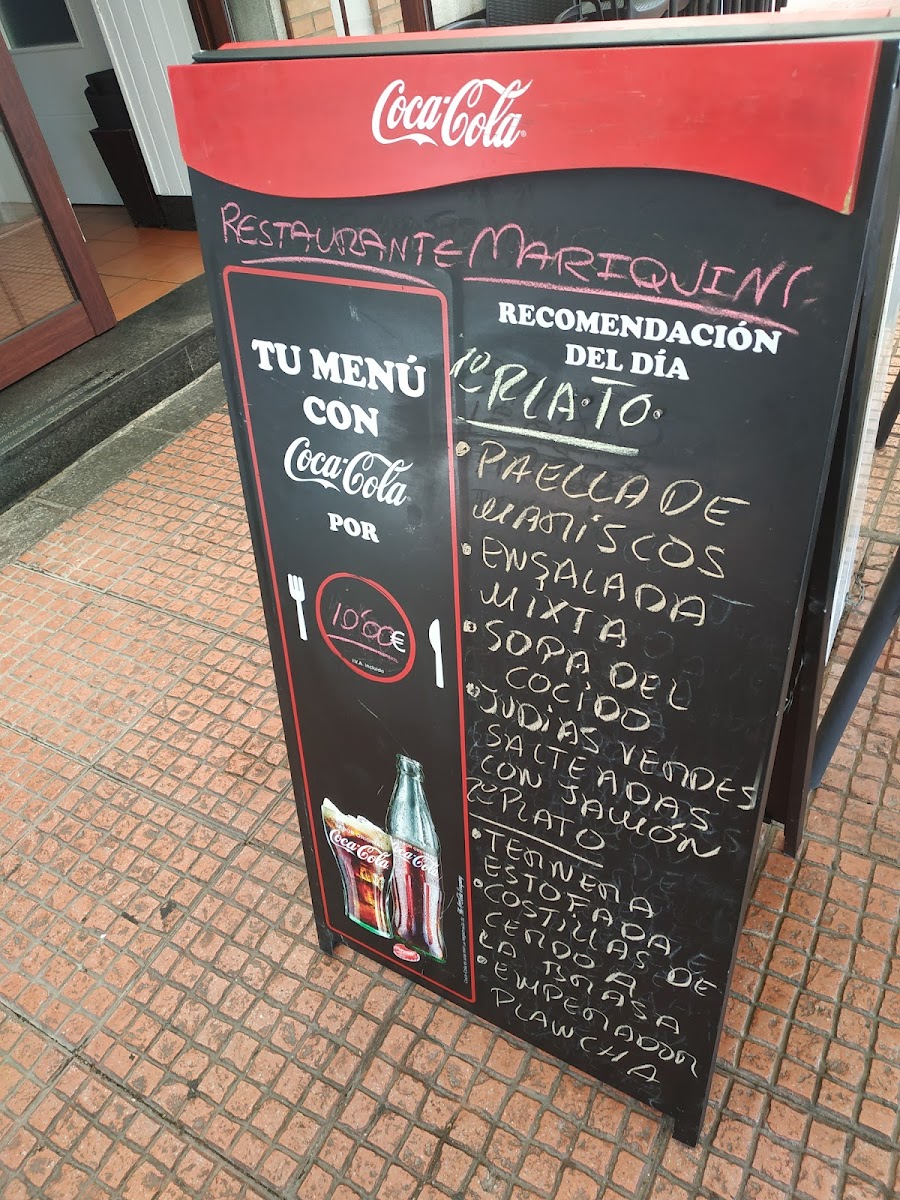 Coca-Cola
RESTAURANTE MARIQUINI
TU MENÚ
CON
Coca-Cola
POR
10'60€
I.V.A. incluido
Coca-Cola
Coca-Cola
RECOMENDACIÓN
DEL DÍA
1º PLATO
PAELLA DE
MARISCOS
ENSALADA
MIXTA
SOPA DEL
COCIDO
JUDÍAS VERDES
SALTEADAS
CON JAMÓN
2º PLATO
TERNERA
ESTOFADA
COSTILLAS DE
CERDO A
LA BRASA
EMPERADOR
PLANCHA